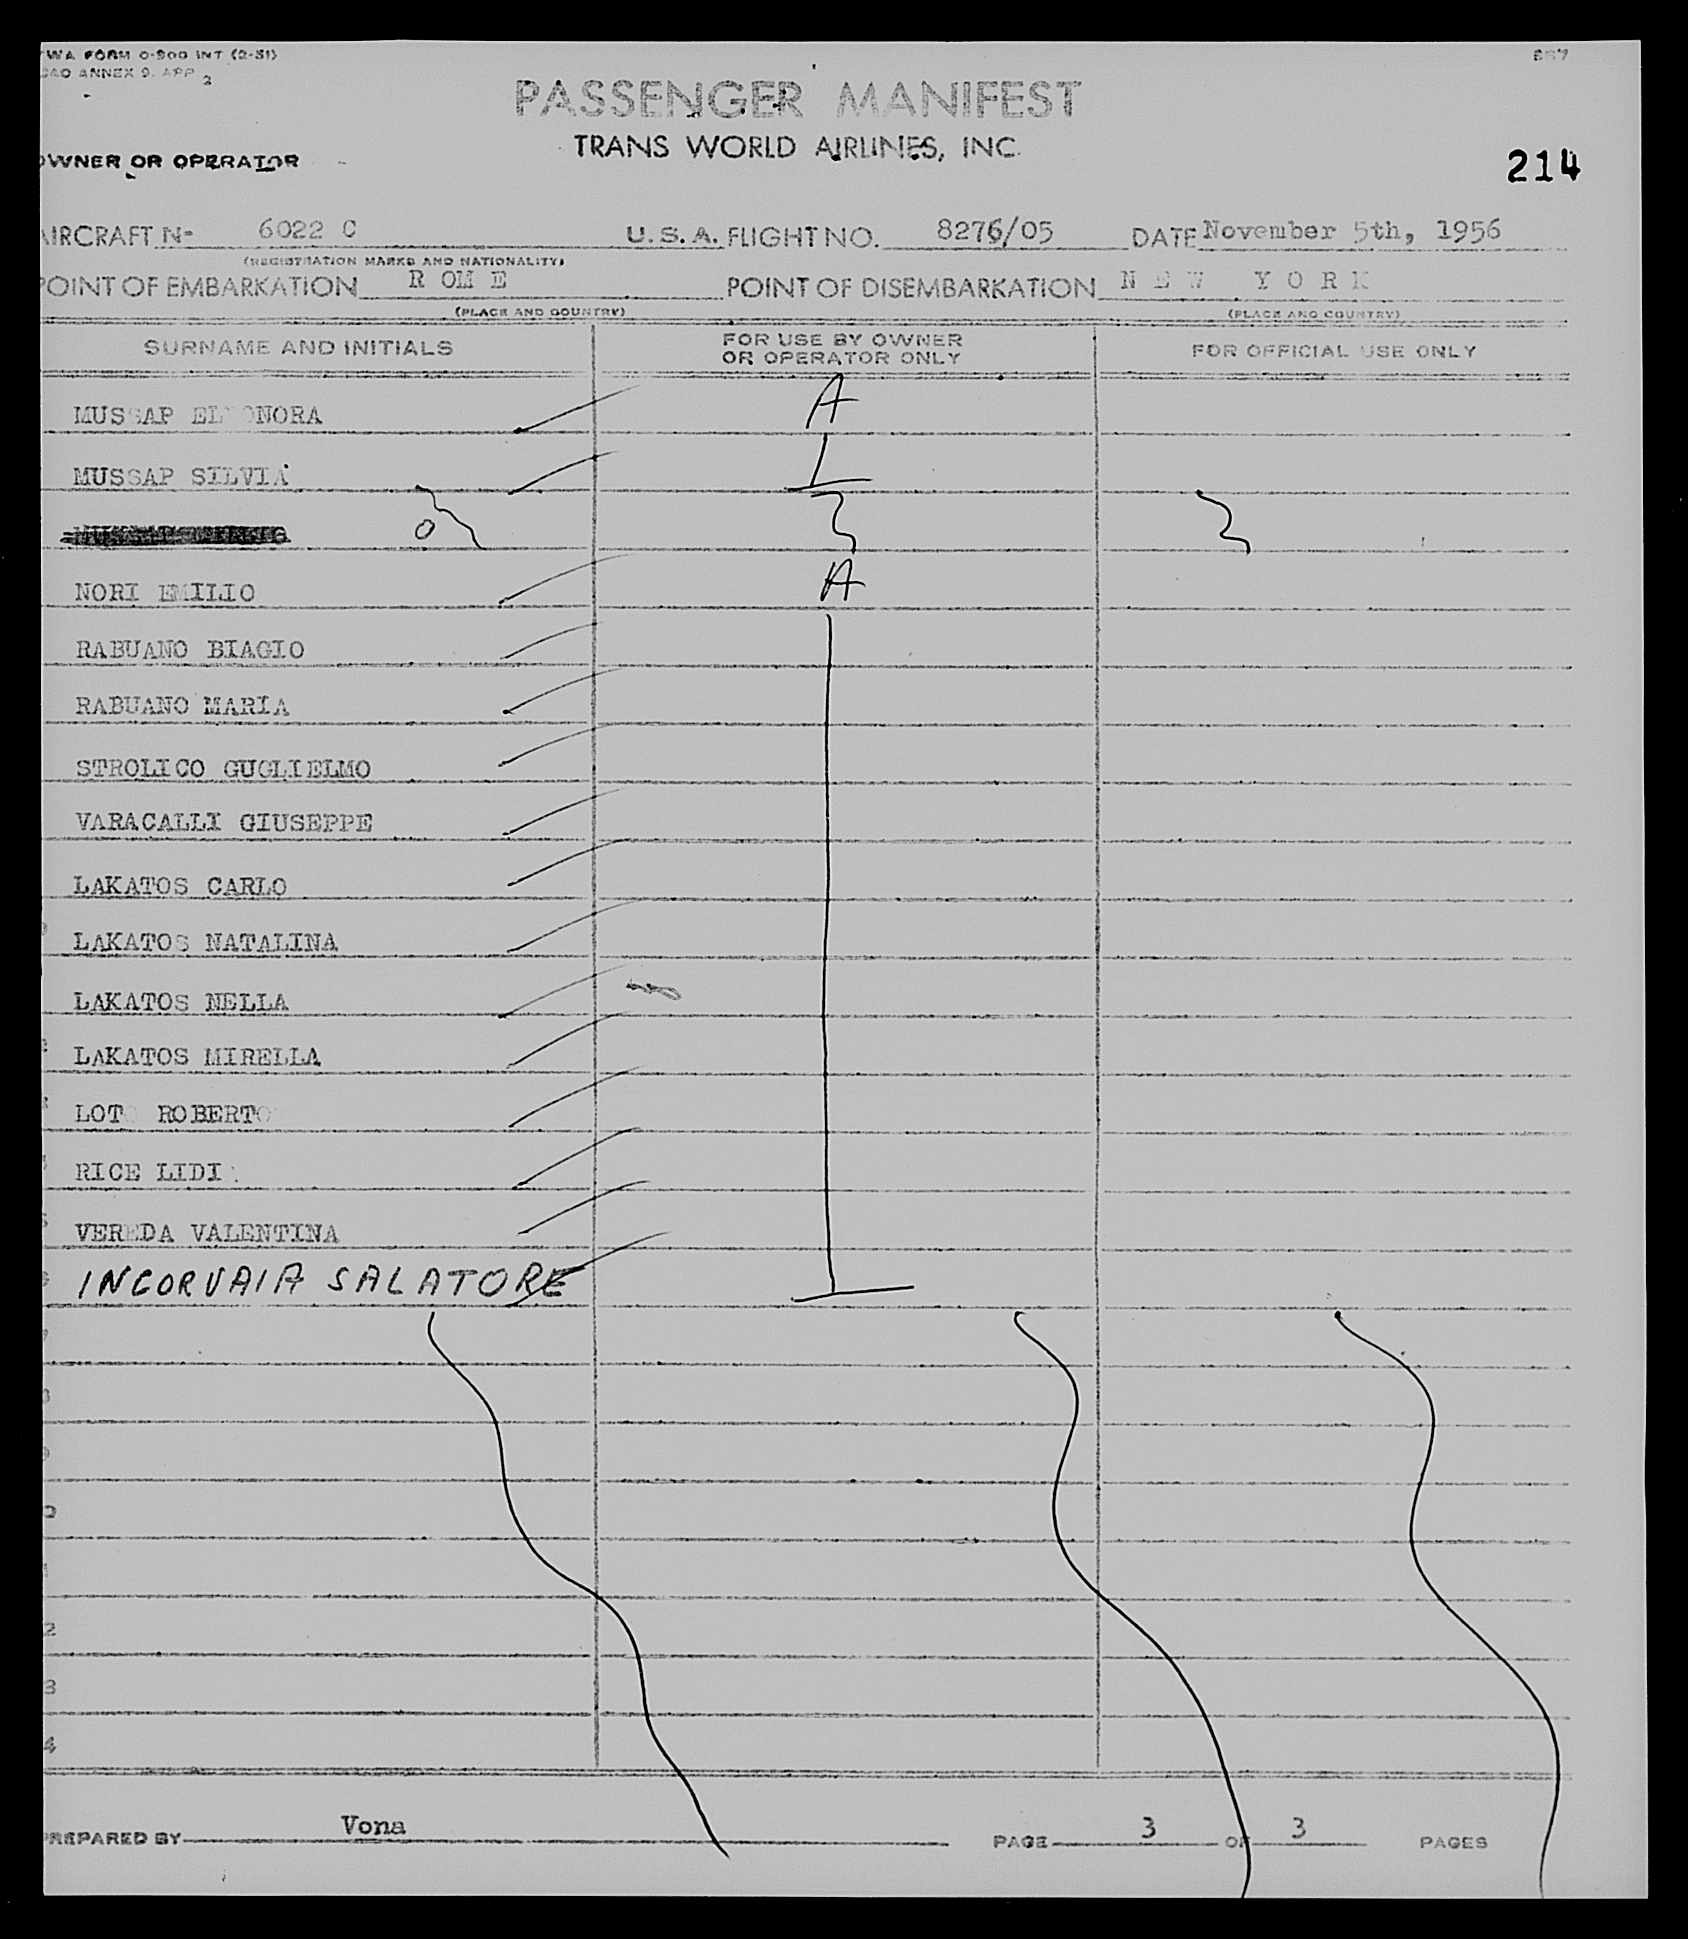 TWA FORM 0-900 INT (2-51)
ICAO ANNEX 9. APP 2
PASSENGER MANIFEST
TRANS WORLD AIRLINES, INC.
OWNER OR OPERATOR
214
AIRCRAFT Nº 6022 C U. S. A. FLIGHT NO. 8276/05 DATE November 5th, 1956
(REGISTRATION MARKS AND NATIONALITY)
POINT OF EMBARKATION R OM E POINT OF DISEMBARKATION N E W Y O R K
(PLACE AND COUNTRY) (PLACE AND COUNTRY)
SURNAME AND INITIALS FOR USE BY OWNER OR OPERATOR ONLY FOR OFFICIAL USE ONLY
MUSSAP ELEONORA A
MUSSAP SILVIA
O
NORI EMILIO A
RABUANO BIAGIO
RABUANO MARIA
STROLICO GUGLIELMO
VARACALLI GIUSEPPE
LAKATOS CARLO
LAKATOS NATALINA
LAKATOS NELLA
2 LAKATOS MIRELLA
LOTO ROBERTO
RICE LIDI
5 VEREDA VALENTINA
6 INCORVAIA SALATORE
7
8
9
0
1
2
3
4
PREPARED BY Vona PAGE 3 OF 3 PAGES